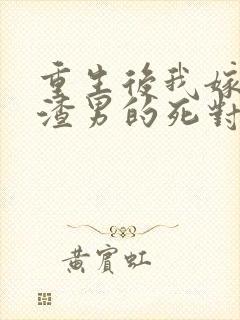 重生後我嫁
渣男的死對
黃賓虹